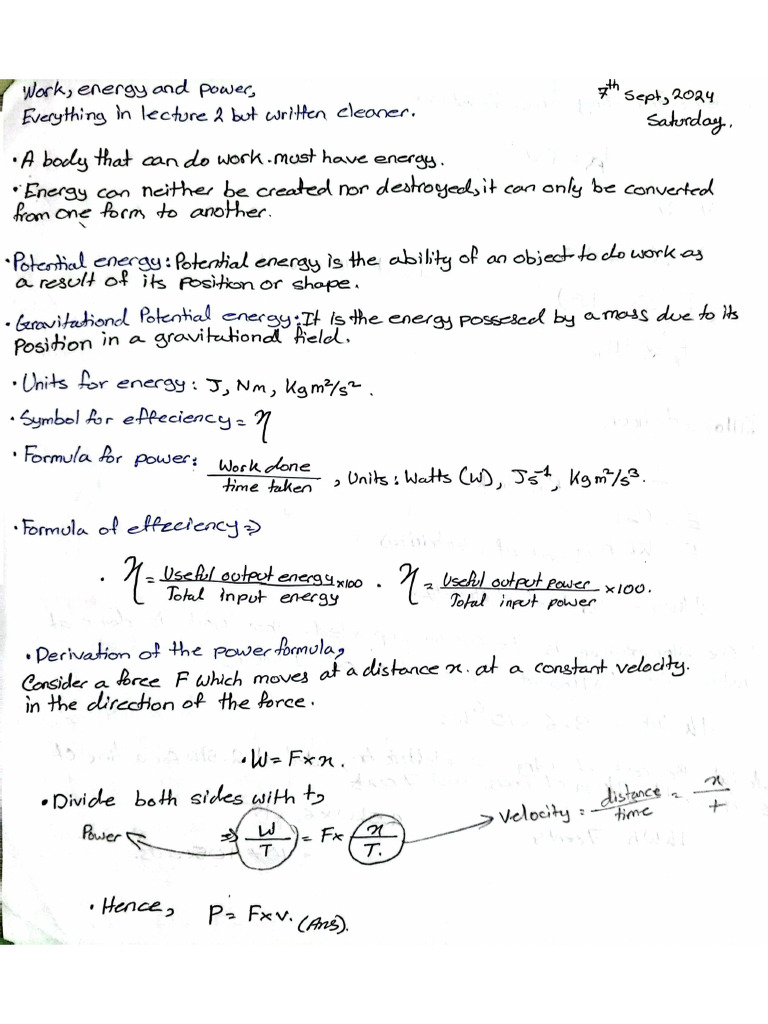 Work, energy and power,
7th Sept, 2024
Everything in lecture 2 but written cleaner.
Saturday.
• A body that can do work must have energy.
• Energy can neither be created nor destroyed, it can only be converted
from one form to another.
• Potential energy: Potential energy is the ability of an object to do work as
a result of its position or shape.
• Gravitational Potential energy: It is the energy possessed by a mass due to its
Position in a gravitational field.
• Units for energy: J, Nm, Kgm²/s².
• Symbol for effeciency = η
• Formula for power: Work done / time taken, Units: Watts (W), Js⁻¹, Kgm²/s³.
• Formula of effeciency ⇒
• η = Useful output energy / Total input energy ×100 • η = Useful output power / Total input power ×100.
• Derivation of the power formula,
Consider a force F which moves at a distance x. at a constant velocity.
in the direction of the force.
• W = F × x.
• Divide both sides with t,
Power ⇒ W/T = F× x/T. Velocity = distance/time = x/t
• Hence, P = F×v. (Ans).